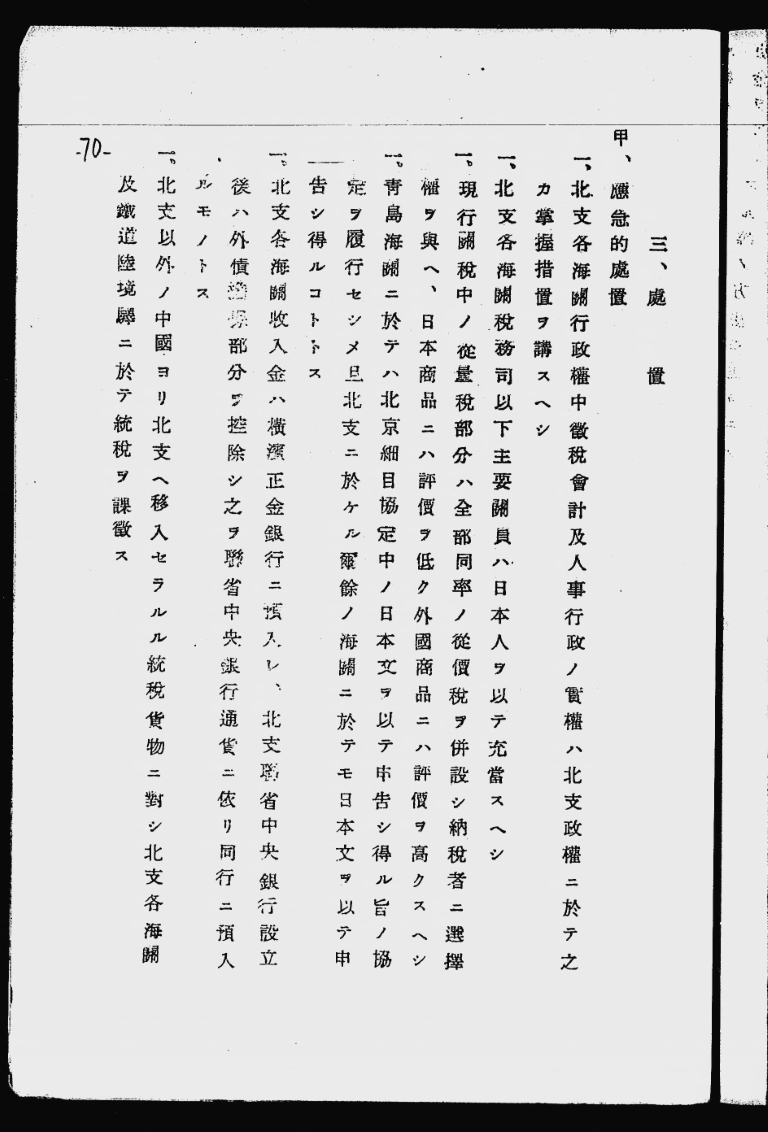 三、處置
甲、應急的處置
一、北支各海關行政權中徵稅會計及人事行政ノ實權ハ北支政權ニ於テ之
カ掌握措置ヲ講スヘシ
一、北支各海關稅務司以下主要關員ハ日本人ヲ以テ充當スヘシ
一。現行關稅中ノ從量稅部分ハ全部同率ノ從價稅ヲ併設シ納稅者ニ選擇
權ヲ與ヘ、日本商品ニハ評價ヲ低ク外國商品ニハ評價ヲ高クスヘシ
一。靑島海關ニ於テハ北京細目協定中ノ日本文ヲ以テ申告シ得ル旨ノ協
定ヲ履行セシメ且北支ニ於ケル爾餘ノ海關ニ於テモ日本文ヲ以テ申
告シ得ルコトトス
一。北支各海關收入金ハ橫濱正金銀行ニ預入レ、北支聯省中央銀行設立
後ハ外債擔保部分ヲ控除シ之ヲ聯省中央銀行通貨ニ依リ同行ニ預入
ルモノトス
一。北支以外ノ中國ヨリ北支ヘ移入セラルル統稅貨物ニ對シ北支各海關
及鐵道陸境驛ニ於テ統稅ヲ課徵ス
-70-